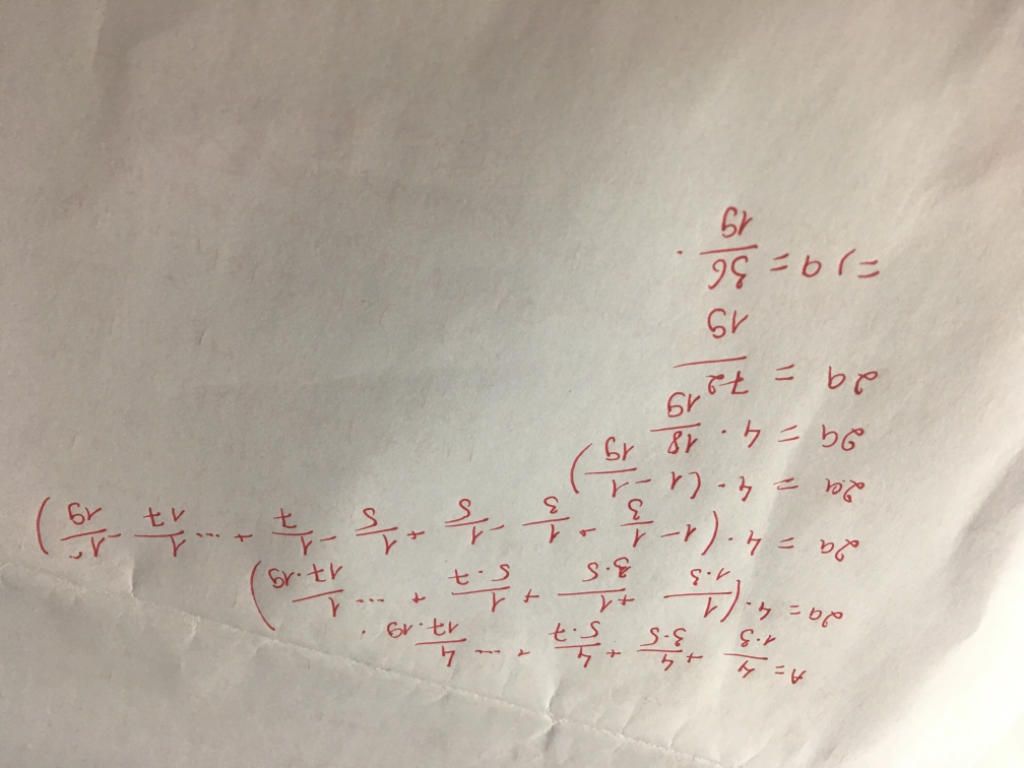 A = 4/1·3 + 4/3·5 + 4/5·7 + ... 4/17·19 .
2a = 4·(1/1·3 + 1/3·5 + 1/5·7 + ... 1/17·19)
2a = 4·(1 - 1/3 + 1/3 - 1/5 + 1/5 - 1/7 + ... 1/17 - 1/19)
2a = 4·(1 - 1/19)
2a = 4 · 18/19
2a = 72/19
=) a = 36/19 .